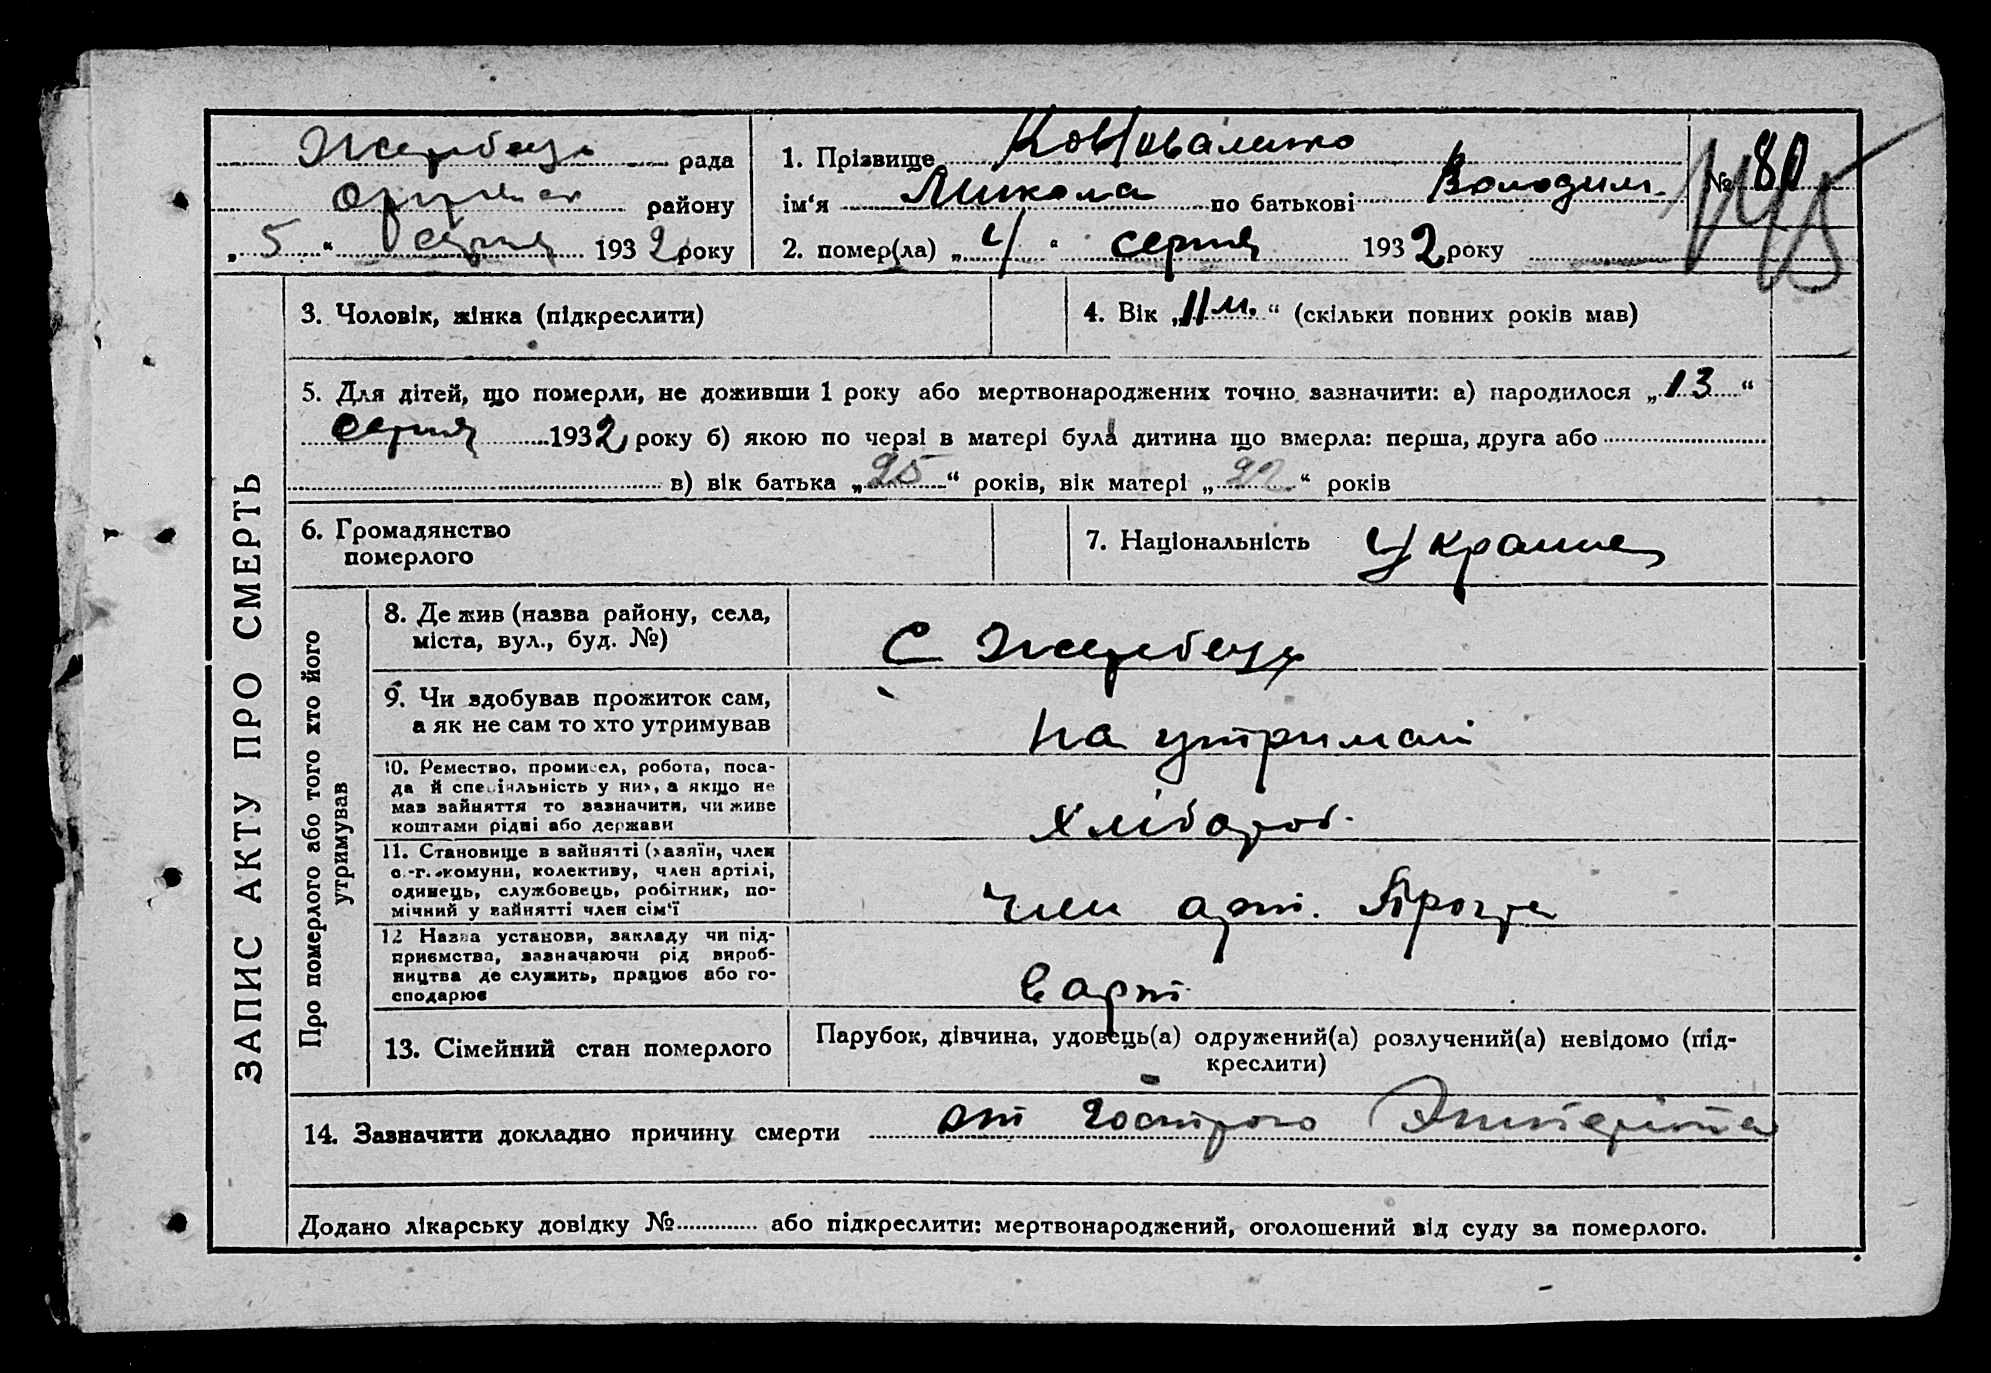 Жеребець рада
району
„ 5 “ серпня 1932 року
1. Прізвище Коноваленко
ім‘я Микола по батькові Володим.
2. помер(ла) „ 4 “ серпня 1932 року
№ 80
145
ЗАПИС АКТУ ПРО СМЕРТЬ
3. Чоловік, жінка (підкреслити)
4. Вік „ 11 м. “ (скільки повних років мав)
5. Для дітей, що померли, не доживши 1 року або мертвонароджених точно зазначити: а) народилося „ 13 “
серпня 1932 року б) якою по черзі в матері була дитина що вмерла: перша, друга або
в) вік батька „ 25 “ років, вік матері „ 22 “ років
6. Громадянство
померлого
7. Національність Украинец
Про померлого або того хто його
утримував
8. Де жив (назва району, села,
міста, вул., буд. №)
С Жеребець
9. Чи здобував прожиток сам,
а як не сам то хто утримував
На утримані
10. Ремество, промисел, робота, поса-
да й спеціяльність у них, а якщо не
мав зайняття то зазначити, чи живе
коштами рідні або держави
Хлібороб.
11. Становище в зайнятті (хазяїн, член
с.-г. комуни, колективу, член артілі,
одинець, службовець, робітник, по-
мічний у зайнятті член сім‘ї
член арт.
12 Назва установи, закладу чи під-
приємства, зазначаючи рід вироб-
ництва де служить, працює або го-
сподарює
в арт.
13. Сімейний стан померлого
Парубок, дівчина, удовець(а) одружений(а) розлучений(а) невідомо (під-
креслити)
14. Зазначити докладно причину смерти от гострого Энтерита
Додано лікарську довідку № або підкреслити: мертвонароджений, оголошений від суду за померлого.